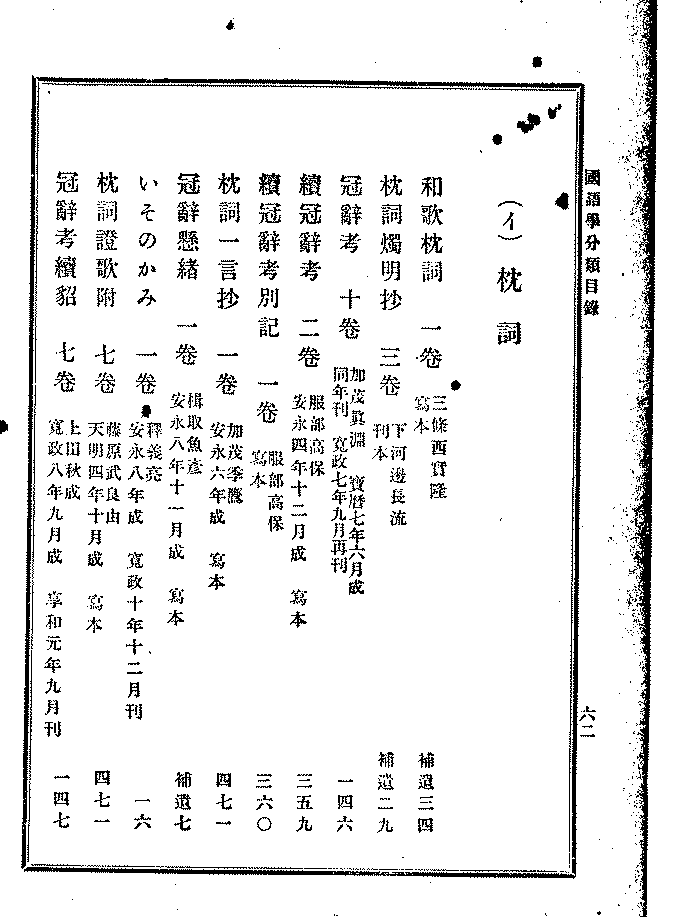 國語學分類目錄
六二
(イ) 枕詞
和歌枕詞 一卷 三條西實隆 寫本 補遺三四
枕詞燭明抄 三卷 下河邊長流 刊本 補遺二九
冠辭考 十卷 加茂眞淵 寶曆七年六月成 同年刊 寬政七年九月再刊 一四六
續冠辭考 二卷 服部高保 安永四年十二月成 寫本 三五九
續冠辭考別記 一卷 服部高保 寫本 三六〇
枕詞一言抄 一卷 加茂季鷹 安永六年成 寫本 四七一
冠辭懸緖 一卷 楫取魚彥 安永八年十一月成 寫本 補遺七
いそのかみ 一卷 釋義亮 安永八年成 寬政十年十二月刊 一六
枕詞證歌附 七卷 藤原武良由 天明四年十月成 寫本 四七一
冠辭考續貂 七卷 上田秋成 寬政八年九月成 享和元年九月刊 一四七